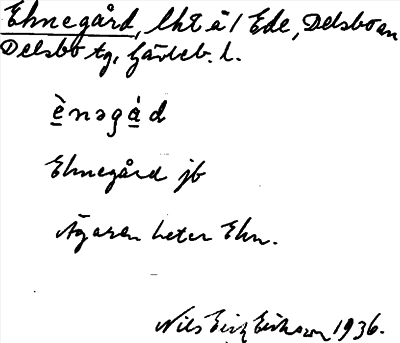 Ehnegård, lht å 1 Ede, Delsbo sn
Delsbo tg, Gävleb. l.
è̱nəgá̱d
Ehnegård jb
Ägaren heter Ehn.
Nils Erik Eriksson 1936.